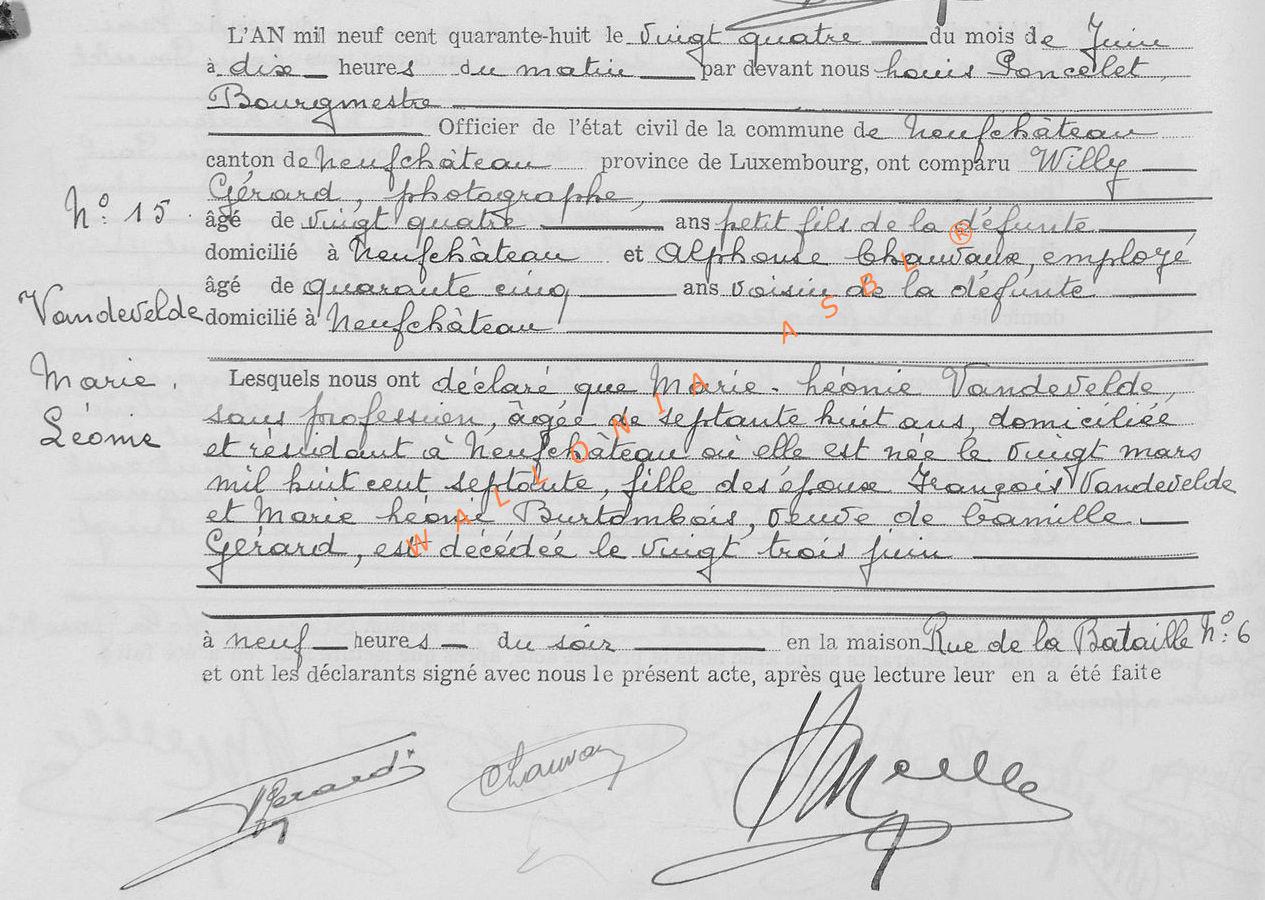 L'AN mil neuf cent quarante-huit le vingt quatre du mois de Juin
à dix heures du matin par devant nous Louis Poncelet,
Bourgmestre
Officier de l'état civil de la commune de Neufchâteau
canton de Neufchâteau province de Luxembourg, ont comparu Willy
Gérard, photographe,
N° 15
âgé de vingt quatre ans petit fils de la défunte
domicilié à Neufchâteau et Alphonse Chauvaux, employé
âgé de quarante cinq ans voisin de la défunte
Vandevelde
domicilié à Neufchâteau
Marie.
Lesquels nous ont déclaré que Marie-Léonie Vandevelde,
Léonie
sans profession, âgée de septante huit ans, domiciliée
et résidant à Neufchâteau où elle est née le vingt mars
mil huit cent septante, fille des époux François Vandevelde
et Marie Léonie Burtombois, veuve de Camille
Gérard, est décédée le vingt trois juin
à neuf heures du soir en la maison Rue de la Bataille N° 6
et ont les déclarants signé avec nous le présent acte, après que lecture leur en a été faite
WALLONIA ASBL ®
Gérard